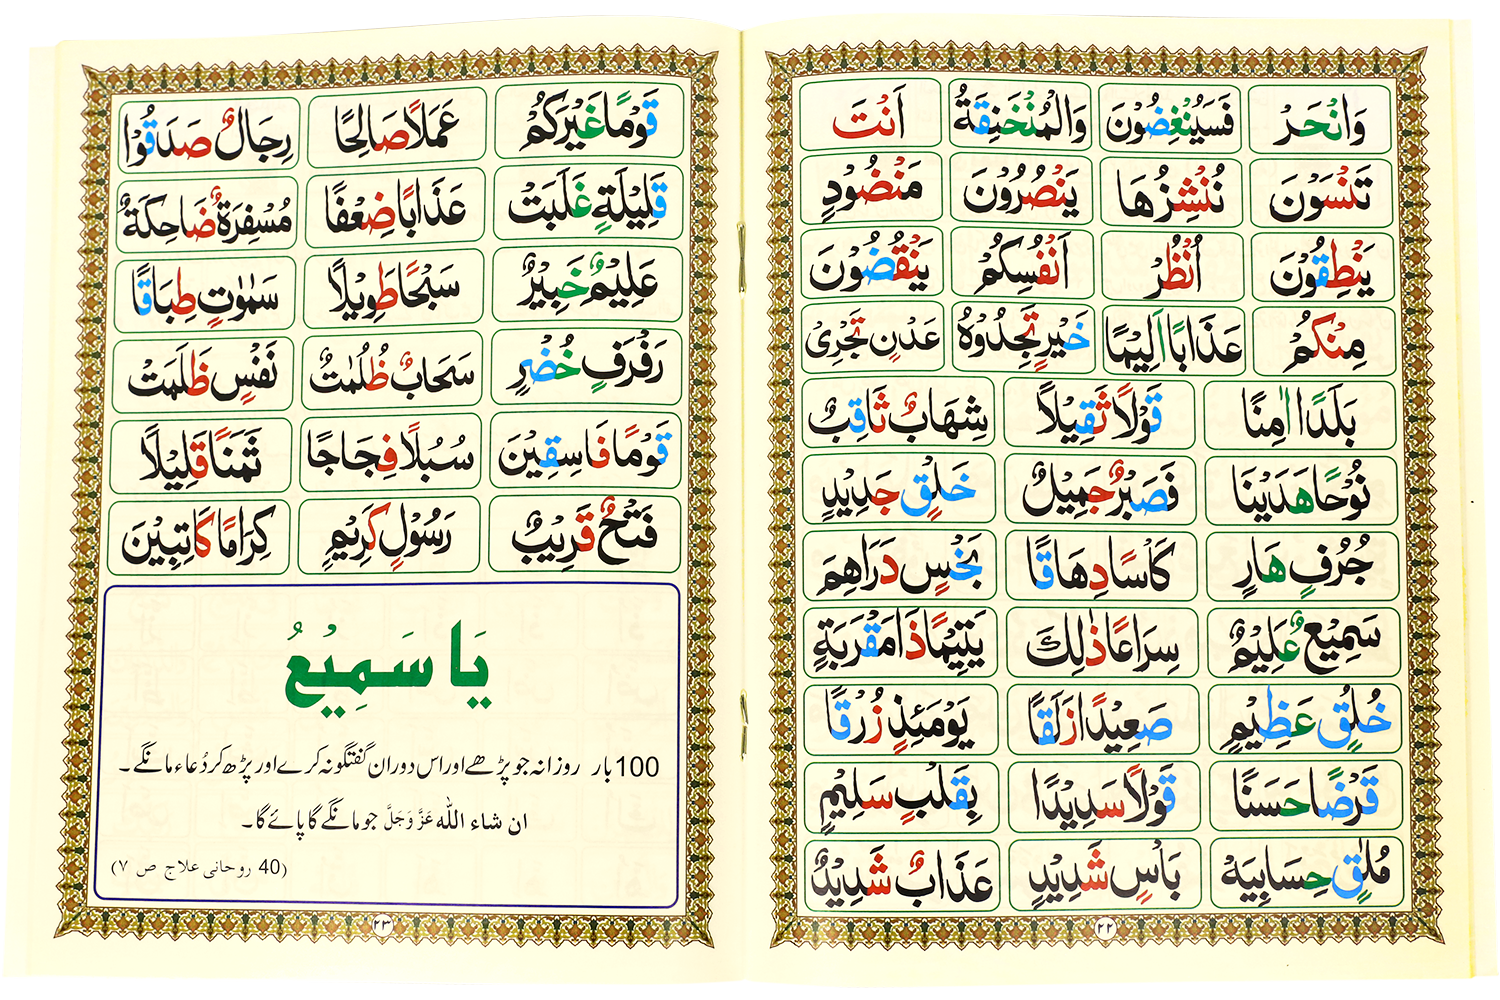 وَانْحَرْ فَسَيُنْغِضُوْنَ وَالْمُنْخَنِقَةُ اَنْتَ
تَنْسَوْنَ نُنْشِزُهَا يَنْصُرُوْنَ مَنْضُوْدٍ
يَنْطِقُوْنَ اُنْظُرْ اَنْفُسِكُمْ يَنْقُضُوْنَ
مِنْكُمْ عَذَابًا اَلِيْمًا خَيْرٍ تَجِدُوْهُ عَدْنٍ تَجْرِىْ
بَلَدًا اٰمِنًا قَوْلًا ثَقِيْلًا شِهَابٌ ثَاقِبٌ
نُوْحًا هَدَيْنَا فَصَبْرٌ جَمِيْلٌ خَلْقٍ جَدِيْدٍ
جُرُفٍ هَارٍ كَاْسًا دِهَاقًا بَخْسٍ دَرَاهِمَ
سَمِيْعٌ عَلِيْمٌ سِرَاعًا ذٰلِكَ يَتِيْمًا ذَا مَقْرَبَةٍ
خُلُقٍ عَظِيْمٍ صَعِيْدًا زَلَقًا يَوْمَئِذٍ زُرْقًا
قَرْضًا حَسَنًا قَوْلًا سَدِيْدًا بِقَلْبٍ سَلِيْمٍ
مُلٰقٍ حِسَابِيَهْ بَاْسٍ شَدِيْدٍ عَذَابٌ شَدِيْدٌ
٢٢
قَوْمًا غَيْرَكُمْ عَمَلًا صَالِحًا رِجَالٌ صَدَقُوْا
قَلِيْلَةٍ غَلَبَتْ عَذَابًا ضِعْفًا مُسْفِرَةٌ ضَاحِكَةٌ
عَلِيْمٌ خَبِيْرٌ سَبْحًا طَوِيْلًا سَمٰوٰتٍ طِبَاقًا
رَفْرَفٍ خُضْرٍ سَحَابٌ ظُلُمٰتٌ نَفْسٍ ظَلَمَتْ
قَوْمًا فَاسِقِيْنَ سُبُلًا فِجَاجًا ثَمَنًا قَلِيْلًا
فَتْحٌ قَرِيْبٌ رَسُوْلٍ كَرِيْمٍ كِرَامًا كَاتِبِيْنَ
يَا سَمِيْعُ
100 بار روزانہ جو پڑھے اور اس دوران گفتگو نہ کرے اور پڑھ کر دُعاء مانگے۔
ان شاء اللّٰه عَزَّوَجَلَّ جو مانگے گا پائے گا۔
(40 روحانی علاج ص ٧)
٢٣